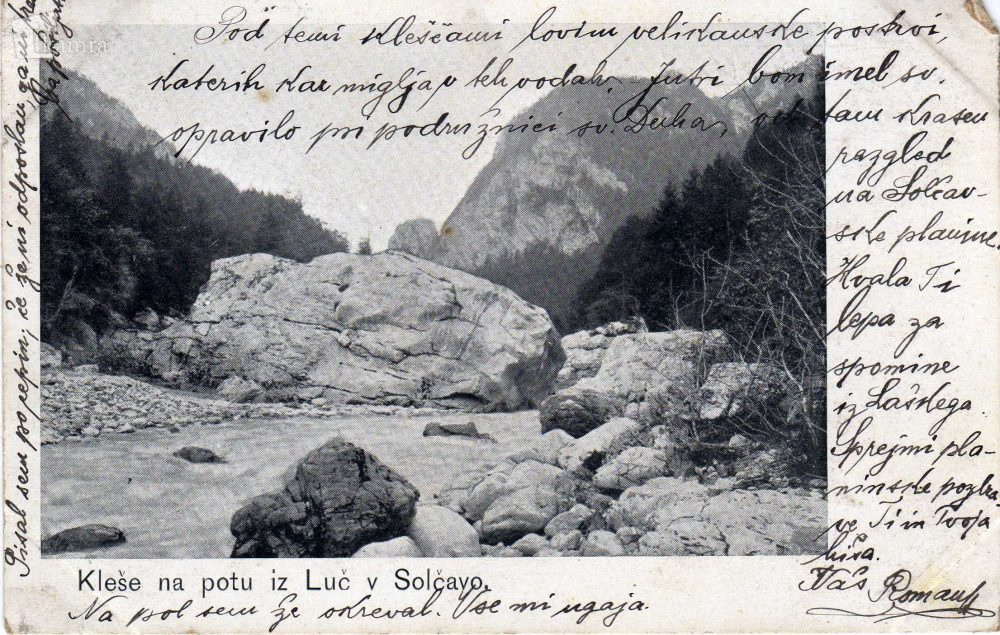 Pod temi kleščami lovim velikanske postrvi,
katerih kar migljá v teh vodah. Jutri bom imel sv.
opravilo pri podružnici sv. Duha, od tam krasen
razgled
na Solčav-
ske planine.
Hvala Ti
lepa za
spomine
iz Laškega.
Sprejmi pla-
ninske pozdra
ve Ti in Tvoja
hiša.
Vaš Roman
Kleše na potu iz Luč v Solčavo.
Na pol sem že okreval. Vse mi ugaja.
Pisal sem po pepin, če že ni odposlan ga mi